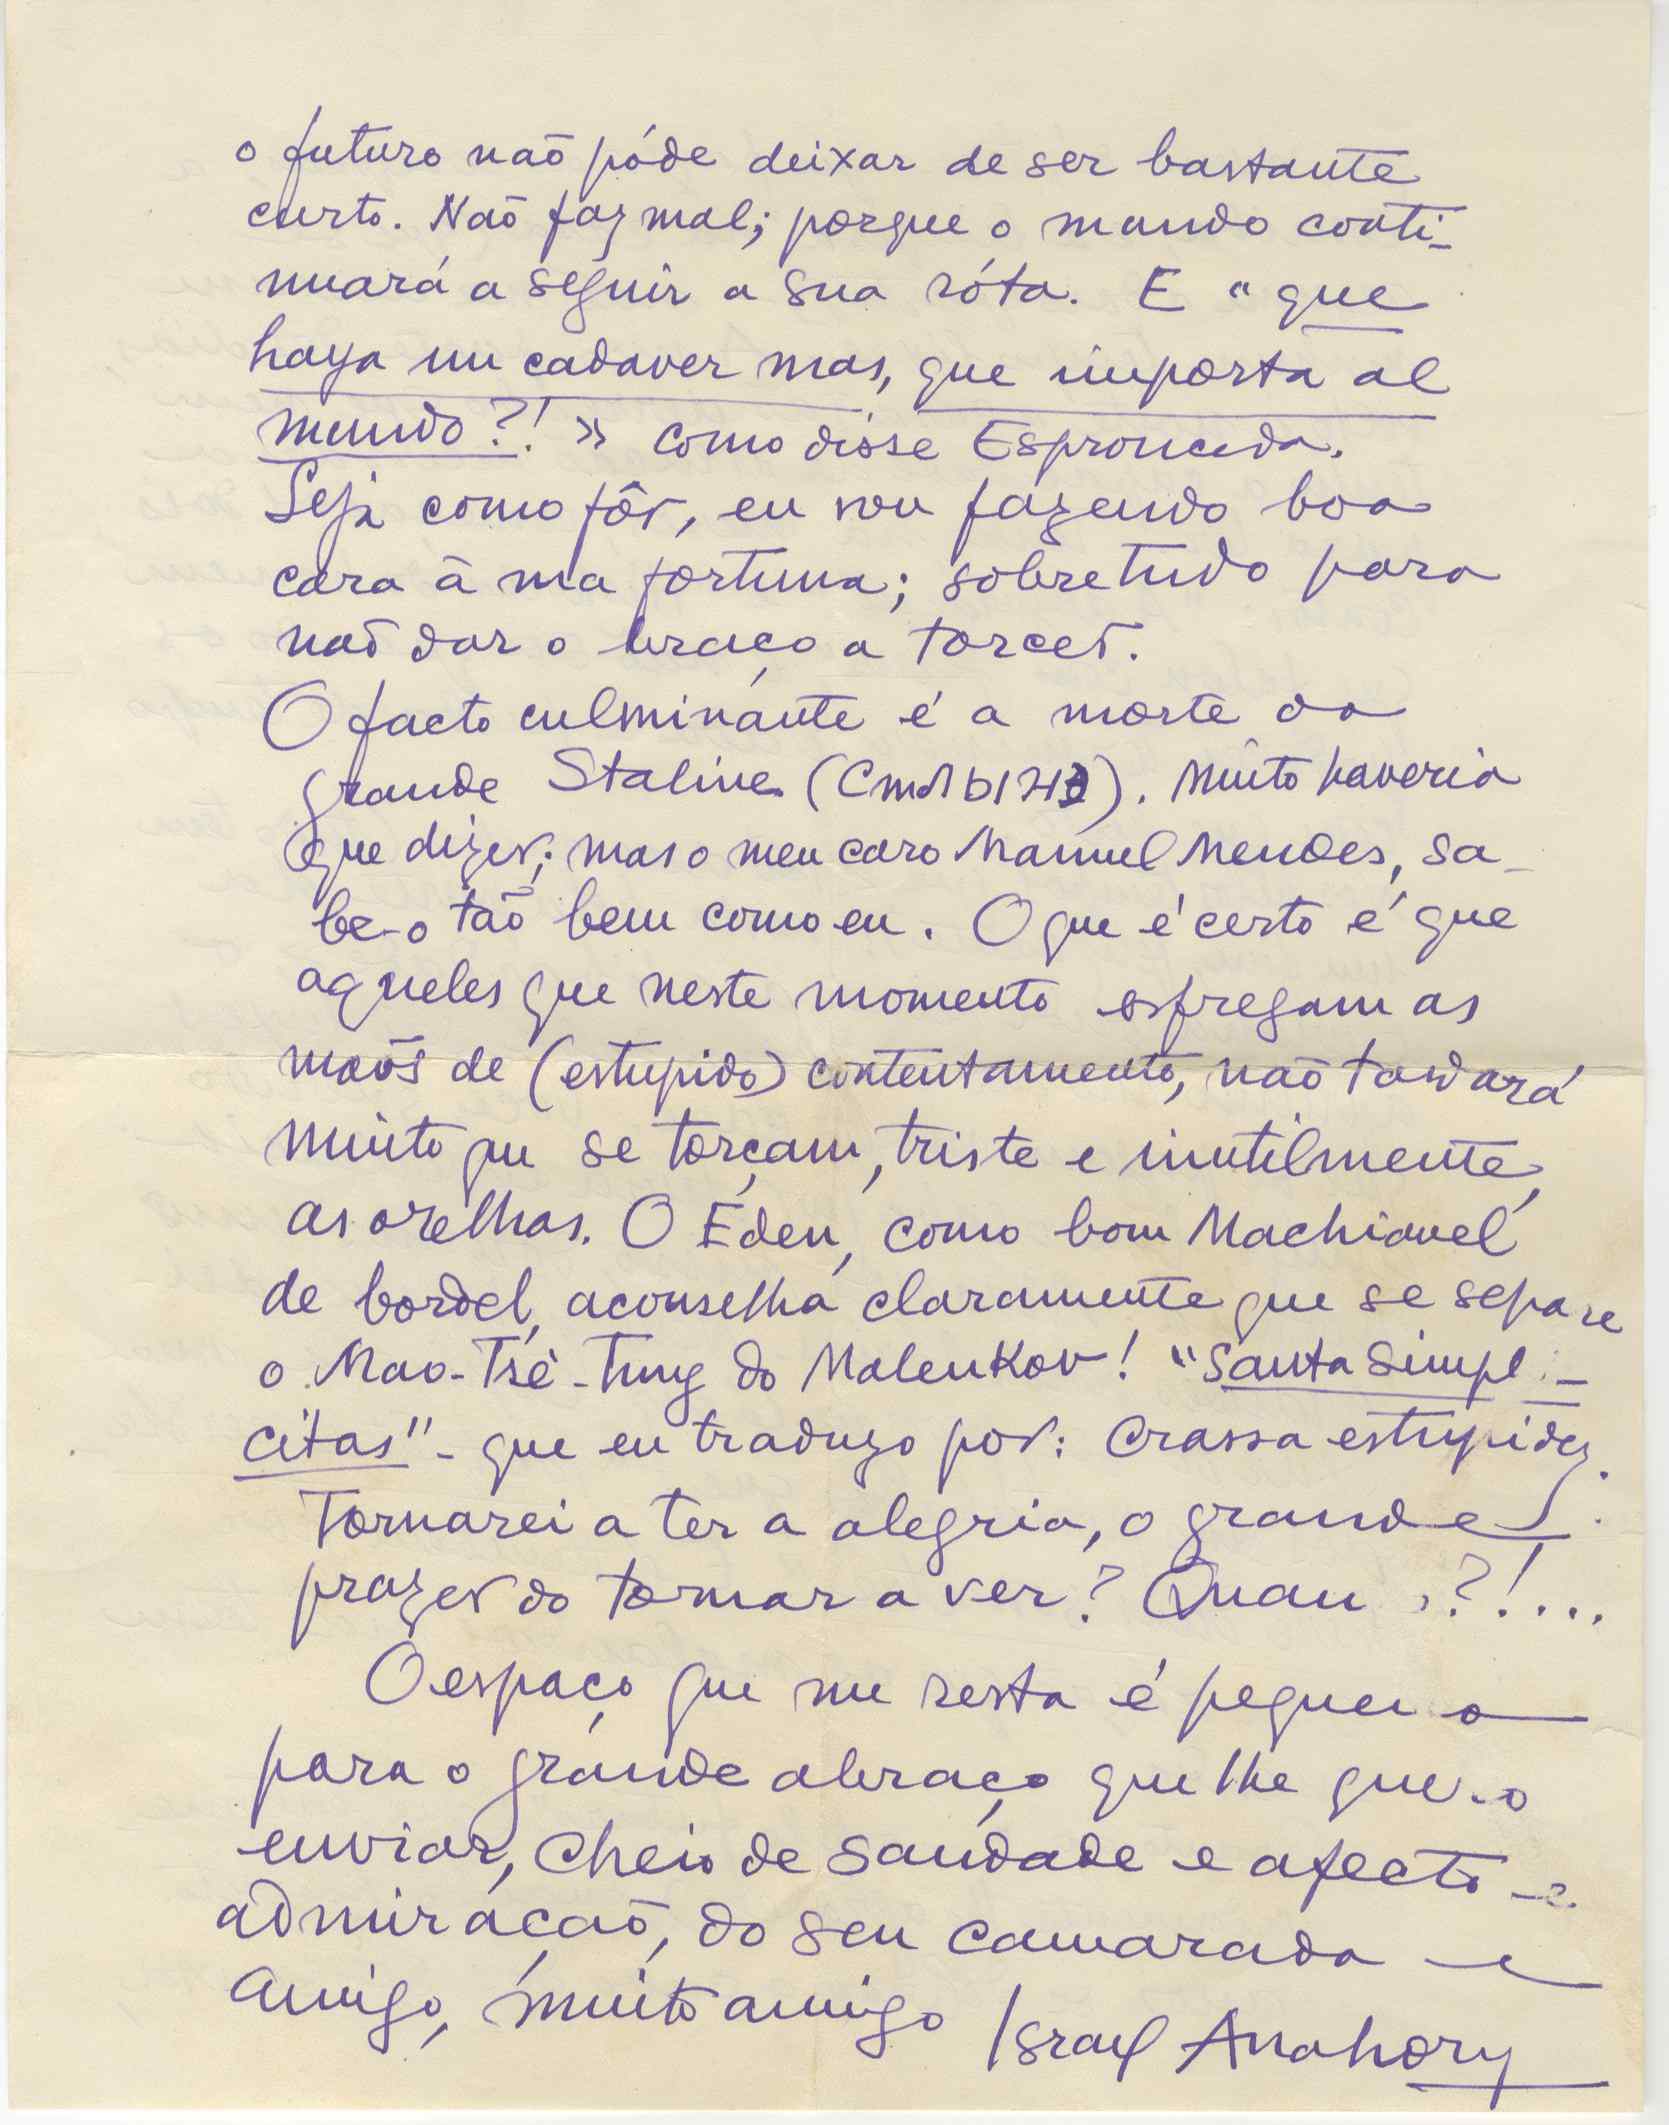 o futuro não póde deixar de ser bastante
curto. Não faz mal; porque o mundo conti-
nuará a seguir a sua róta. E "que
haya un cadaver mas, que importa al
mundo?!" como disse Espronceda.
Seja como fôr, eu vou fazendo boa
cara à ma fortuna; sobretudo para
não dar o braço a torcer.
O facto culminante é a morte do
grande Staline ( ). Muito haveria
que dizer; mas o meu caro Manuel Mendes, sa-
be-o tão bem como eu. O que é certo é que
aqueles que neste momento esfregam as
mãos de (estupido) contentamento, não tardará
muito que se torçam, triste e inutilmente,
as orelhas. O Éden, como bom Machiavel
de bordel, aconselha claramente que se separe
o Mao-Tsé-Tung do Malenkov! "Santa Simpl-
citas" - que eu traduzo por: crassa estupidez.
Tornarei a ter a alegria, o grande
prazer do tornar a ver? Quan ?!...
O espaço que me resta é pequeno
para o grande abraço que lhe quero
enviar, cheio de saudade e afecto e
admiração, do seu camarada e
amigo, muito amigo Israel Anahory